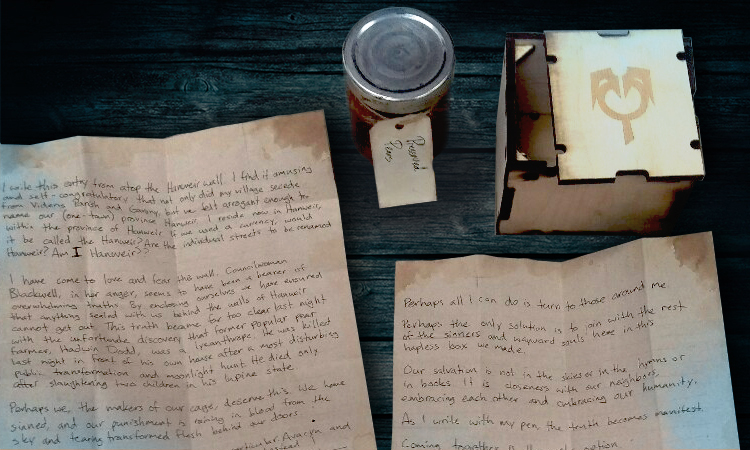 I write this entry from atop the Hanweir wall. I find it amusing
and self-congratulatory that not only did my village secede
from Videns Parish and Gavony, but we felt arrogant enough to
name our (one-town) province Hanweir. I reside now in Hanweir,
within the province of Hanweir. If we used a currency, would
it be called the Hanweir? Are the individual streets to be renamed
Hanweir? Am I Hanweir??
I have come to love and fear this wall. Councilwoman
Blackwell, in her anger, seems to have been a bearer of
overwhelming truths. By enclosing ourselves we have ensured
that anything sealed with us behind the walls of Hanweir
cannot get out. This truth became far too clear last night
with the unfortunate discovery that former popular pear
farmer, Hadwin Dodd, was a lycanthrope. He was killed
last night in front of his own house after a most disturbing
public transformation and moonlight hunt. He died only
after slaughtering two children in his lupine state.
Perhaps we, the makers of our cage, deserve this. We have
sinned, and our punishment is raining in blood from the
sky and tearing transformed flesh behind our doors.
particular. Avacyn and
instead
Preserved
Pears
Perhaps all I can do is turn to those around me.
Perhaps the only solution is to join with the rest
of the sinners and wayward souls here in this
hapless box we made.
Our salvation is not in the skies or in the hymns or
in books. It is closeness with our neighbors,
embracing each other and embracing our humanity.
As I write with my pen, the truth becomes manifest.
Coming together is the only option.